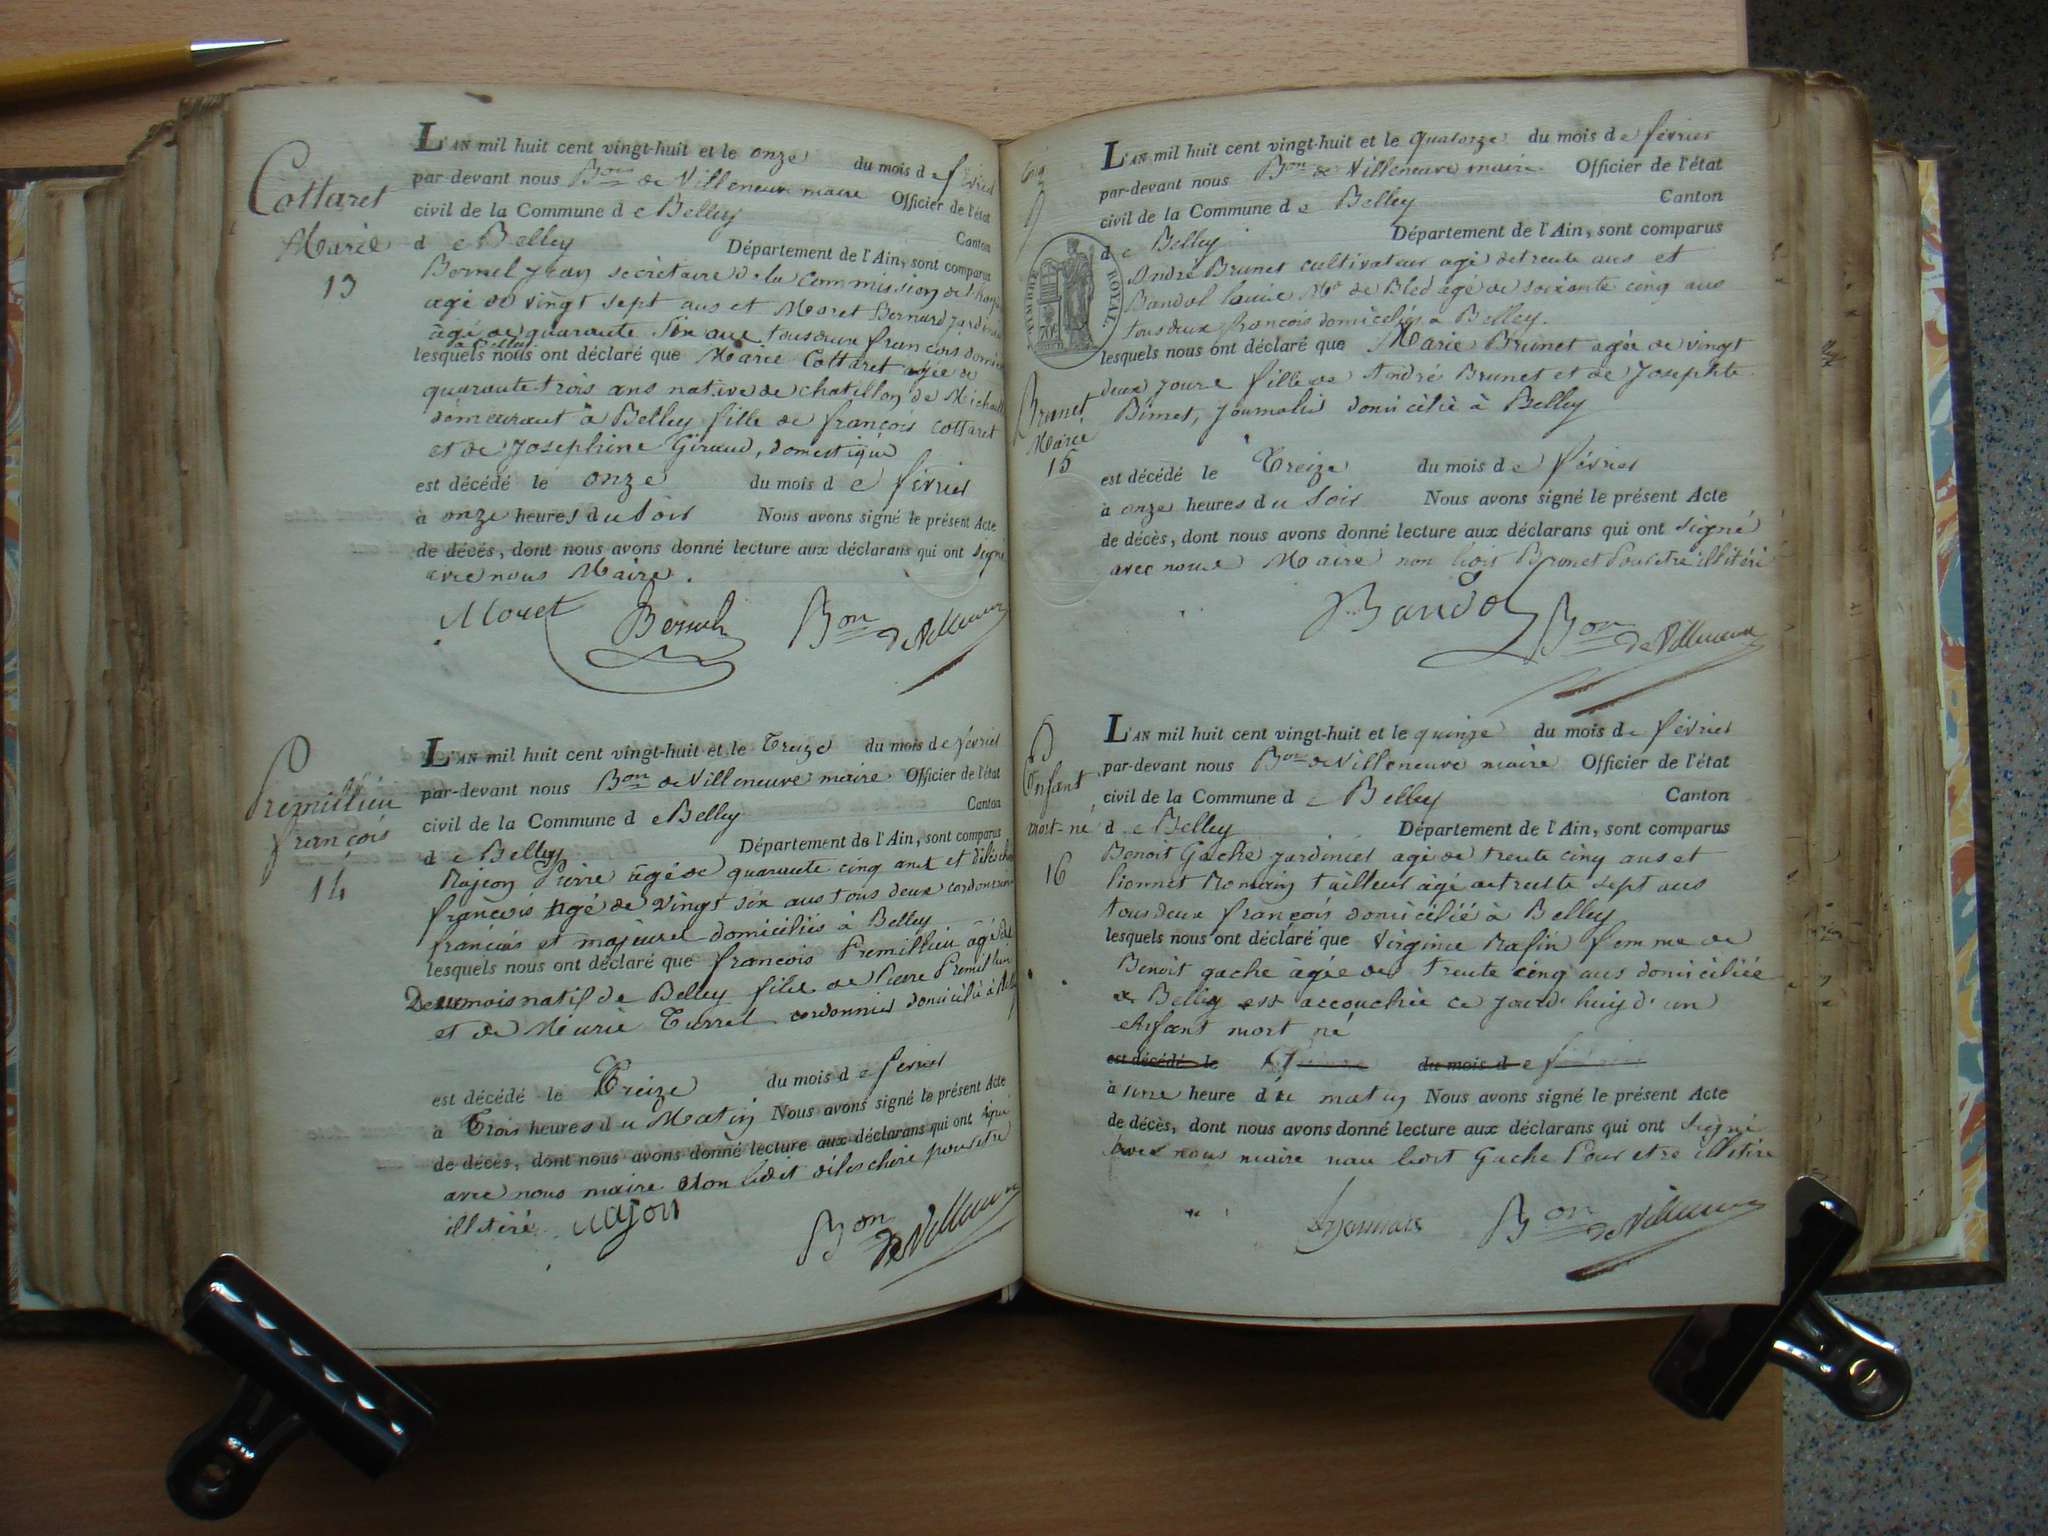 Cottaret
Marie
13
L'AN mil huit cent vingt-huit et le onze du mois de février
par-devant nous Bon de Villeneuve maire Officier de l'état
civil de la Commune de Belley Canton
de Belley Département de l'Ain, sont comparus
Bernel jean secrétaire de la Commission de
agé de vingt sept ans et Moret Bernard jardinier
âgé de quarante six ans tous deux françois
à Belley
lesquels nous ont déclaré que Marie Cottaret agée de
quarante trois ans native de chatillon de Michaille
demeurant à Belley fille de françois Cottaret
et de Josephine Giraud, domestique
est décédé le onze du mois de février
à onze heures du soir Nous avons signé le présent Acte
de décès, dont nous avons donné lecture aux déclarans qui ont signé
avec nous Maire.
Moret Bernel Bon de Villeneuve
Premillieu
françois
14
L'AN mil huit cent vingt-huit et le Treize du mois de février
par-devant nous Bon de Villeneuve maire Officier de l'état
civil de la Commune de Belley Canton
de Belley Département de l'Ain, sont comparus
Najeon Pierre âgé de quarante cinq ans et
françois agé de vingt six ans tous deux cordonniers
français et majeures domiciliés à Belley
lesquels nous ont déclaré que françois Premillieu âgé de
Deux mois natif de Belley fils de Pierre Premillieu
et de Marie Turrel cordonnier domicilié à Belley
est décédé le Treize du mois de février
à Trois heures du Matin Nous avons signé le présent Acte
de décès, dont nous avons donné lecture aux déclarans qui ont signé
avec nous maire non ledit pour être
illitéré. Najon Bon de Villeneuve
TIMBRE ROYAL.
Brunet
Marie
15
L'AN mil huit cent vingt-huit et le quatorze du mois de février
par-devant nous Bon de Villeneuve maire Officier de l'état
civil de la Commune de Belley Canton
de Belley Département de l'Ain, sont comparus
André Brunet cultivateur agé de trente ans et
Bandol Md de Bled agé de soixante cinq ans
tous deux françois domiciliés à Belley.
lesquels nous ont déclaré que Marie Brunet agée de vingt
deux jours fille de André Brunet et de Josephte
Bimet, journalier domicilié à Belley
est décédé le Treize du mois de février
à onze heures du soir Nous avons signé le présent Acte
de décès, dont nous avons donné lecture aux déclarans qui ont signé
avec nous Maire non Brunet Pour être illitéré
Bandol Bon de Villeneuve
Enfant
mort-né
16
L'AN mil huit cent vingt-huit et le quinze du mois de février
par-devant nous Bon de Villeneuve maire Officier de l'état
civil de la Commune de Belley Canton
de Belley Département de l'Ain, sont comparus
Benoit Gache jardinier agé de trente cinq ans et
Lionnet Romain tailleur âgé de trente sept ans
tous deux françois domicilié à Belley
lesquels nous ont déclaré que Virginie Rafin femme de
Benoit gache âgée de trente cinq ans domiciliée
à Belley est accouchée ce jourd'huy d'un
Enfant mort né
est décédé le du mois de
à une heure du matin Nous avons signé le présent Acte
de décès, dont nous avons donné lecture aux déclarans qui ont signé
avec nous maire non ledit Gache Pour etre illitéré
Bon de Villeneuve